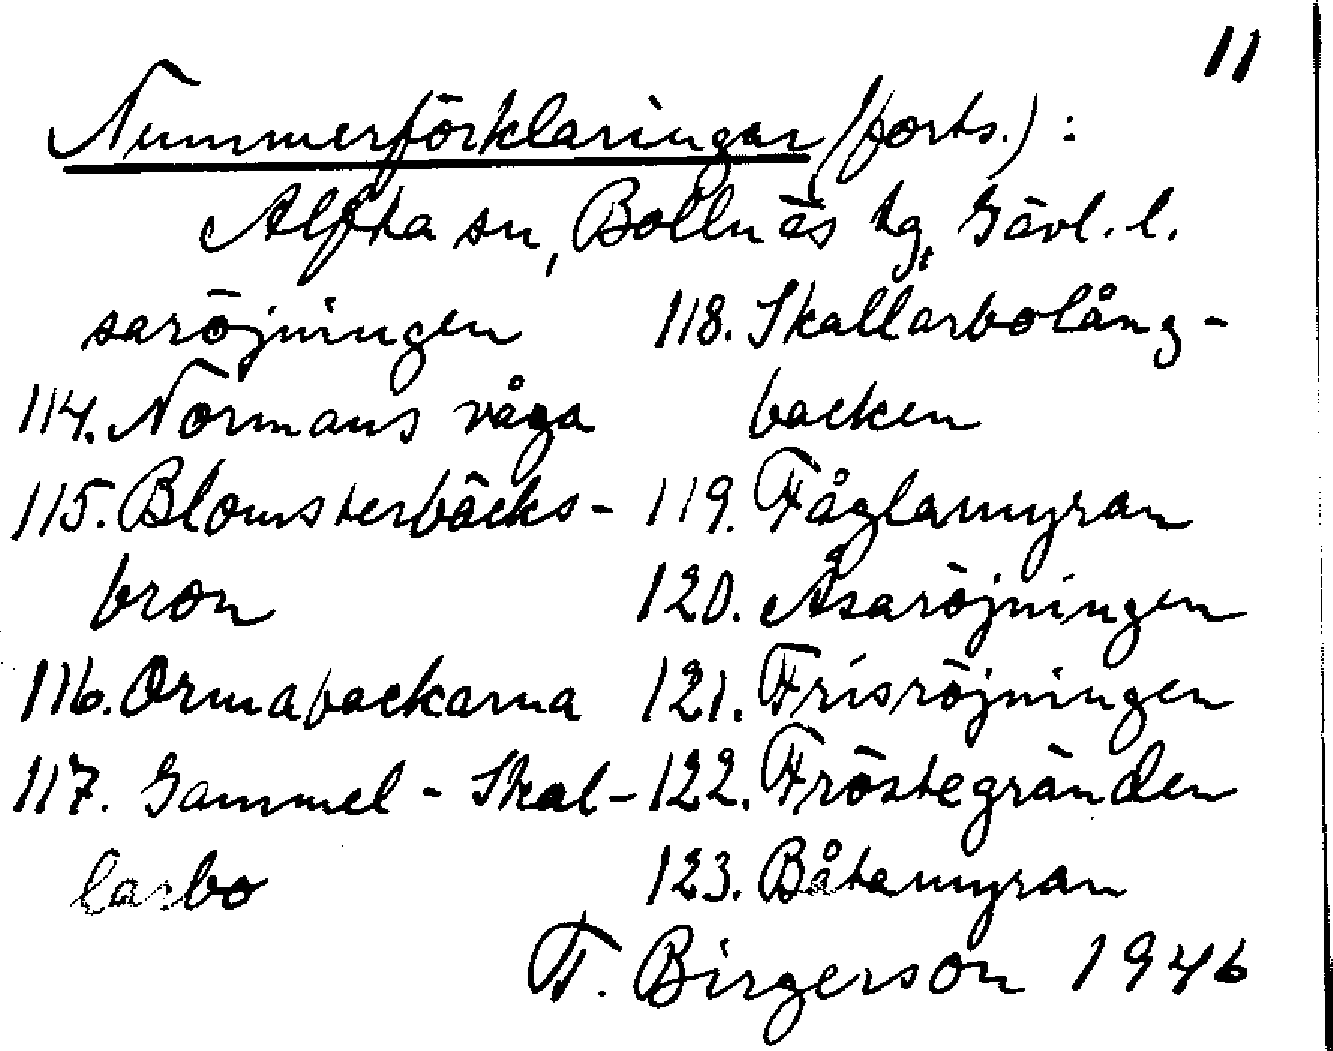 11
Nummerförklaringar (forts.):
Alfta sn, Bollnäs tg, Gävl. l.
saröjningen
114. Normans våga
115. Blomsterbäcks-
bron
116. Ormabackarna
117. Gammel-Skal-
larbo
118. Skallarbolång-
backen
119. Fåglamyran
120. Åsaröjningen
121. Frisröjningen
122. Fröstegränden
123. Båtamyran
F. Birgerson 1946